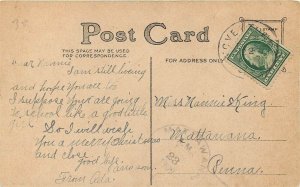 Post Card
THIS SPACE MAY BE USED
FOR CORRESPONDENCE.
FOR ADDRESS ONLY
Dear Nannie
I am still living
and hope you are too
I suppose you are all going
to school like a good little
So I will wish
you a merry Christmas
and close
Good bye
From Ada.
Miss Nannie King
Mattawana
Penna.